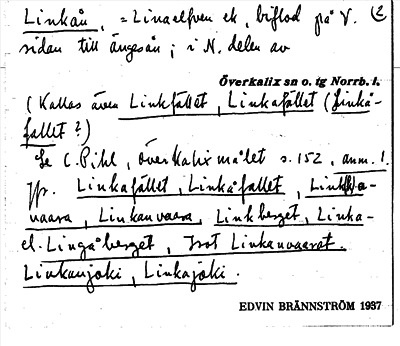 Linkån, = Linaelfven el., biflod på V. (2
sidan till ängesån; i N. delen av
Överkalix sn o. tg Norrb. l.
(Kallas även Linkfället, Linkafället (Linkå-
fallet?)
Se C. Pihl, Överkalixmålet s. 152, anm. 1.
Jfr. Linkafället, Linkåfallet,
vaara, Linkanvaara, Linkberget, Linka-
el. Lingåberget, Isot Linkanvaarat.
Linkanjoki, Linkajoki.
EDVIN BRÄNNSTRÖM 1937